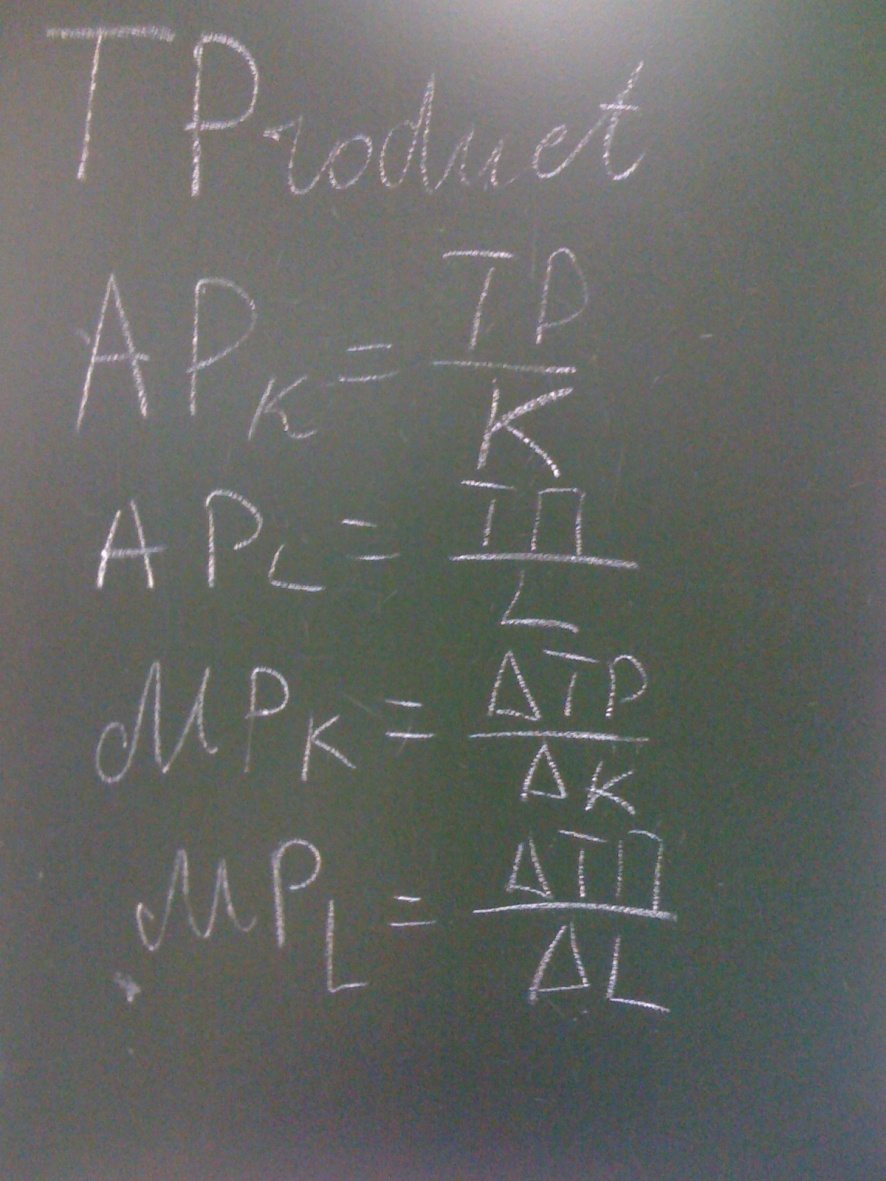 TProduct
AP_K = TP/K
AP_L = TП/L
MP_K = ΔTP/ΔK
MP_L = ΔTП/ΔL